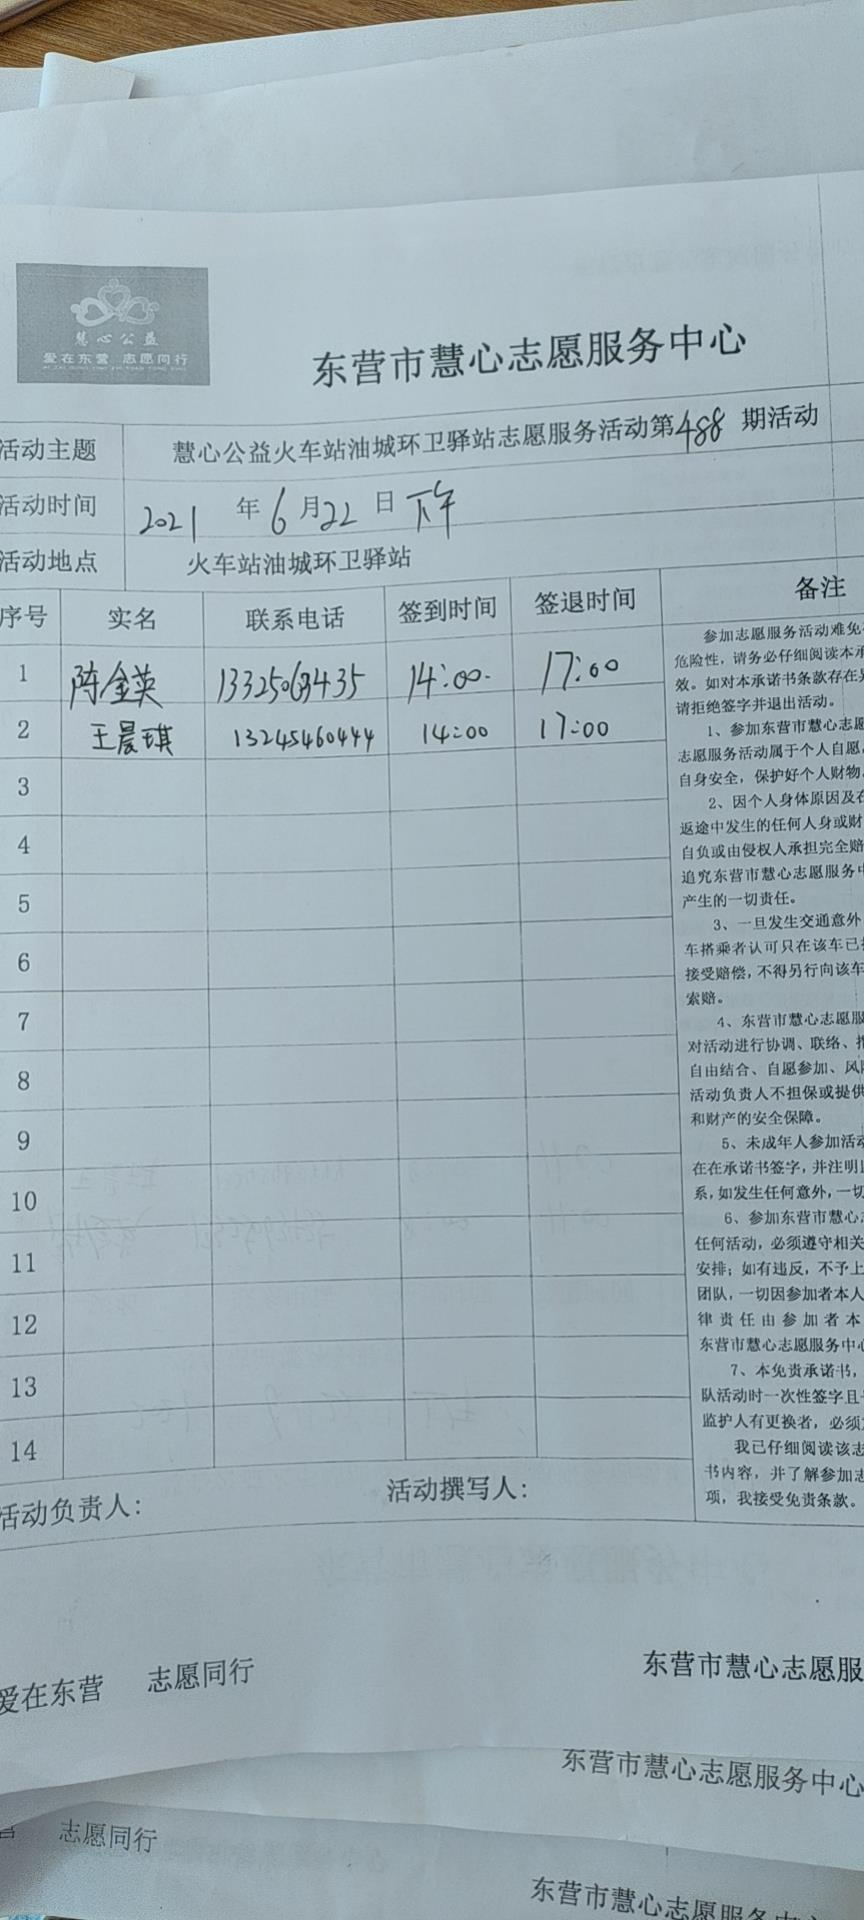 慧心公益
爱在东营 志愿同行
东营市慧心志愿服务中心
活动主题 慧心公益火车站油城环卫驿站志愿服务活动第488期活动
活动时间 2021年6月22日下午
活动地点 火车站油城环卫驿站
序号 实名 联系电话 签到时间 签退时间 备注
1 陈金英 14:00. 17:00
2 王晨琪 13245460444 14:00 17:00
3
4
5
6
7
8
9
10
11
12
13
14
参加志愿服务活动难免
危险性，请务必仔细阅读本承
效。如对本承诺书条款存在
请拒绝签字并退出活动。
1、参加东营市慧心志愿
志愿服务活动属于个人自愿
自身安全，保护好个人财物
2、因个人身体原因及在
返途中发生的任何人身或财
自负或由侵权人承担完全赔
追究东营市慧心志愿服务中
产生的一切责任。
3、一旦发生交通意外
车搭乘者认可只在该车已
接受赔偿，不得另行向该车
索赔。
4、东营市慧心志愿服
对活动进行协调、联络、
自由结合、自愿参加、风
活动负责人不担保或提供
和财产的安全保障。
5、未成年人参加活动
在在承诺书签字，并注明
系，如发生任何意外，一切
6、参加东营市慧心
任何活动，必须遵守相关
安排；如有违反，不予上
团队，一切因参加者本人
律责任由参加者本
东营市慧心志愿服务中心
7、本免责承诺书，
队活动时一次性签字且
监护人有更换者，必须
我已仔细阅读该志
书内容，并了解参加志
项，我接受免责条款。
活动负责人： 活动撰写人：
爱在东营 志愿同行 东营市慧心志愿服
东营市慧心志愿服务中心
营 志愿同行
东营市慧心志愿服务中